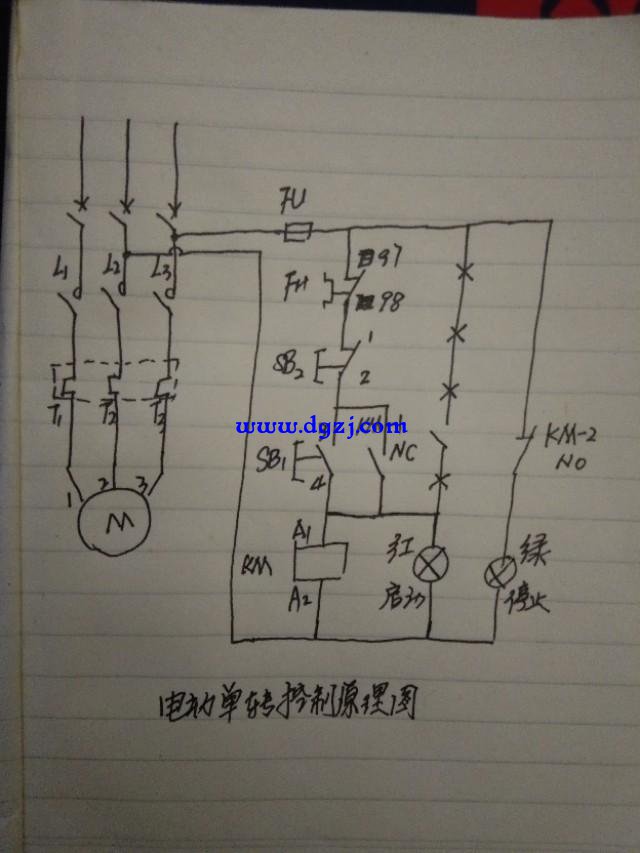 FU
L1 L2 L3
FH
97
98
SB2
1
2
T1 T2 T3
www.dgzj.com
SB1
4
NC
KM-2
NO
1 2 3
M
KM
A1
A2
红
启动
绿
停止
电动单转控制原理图